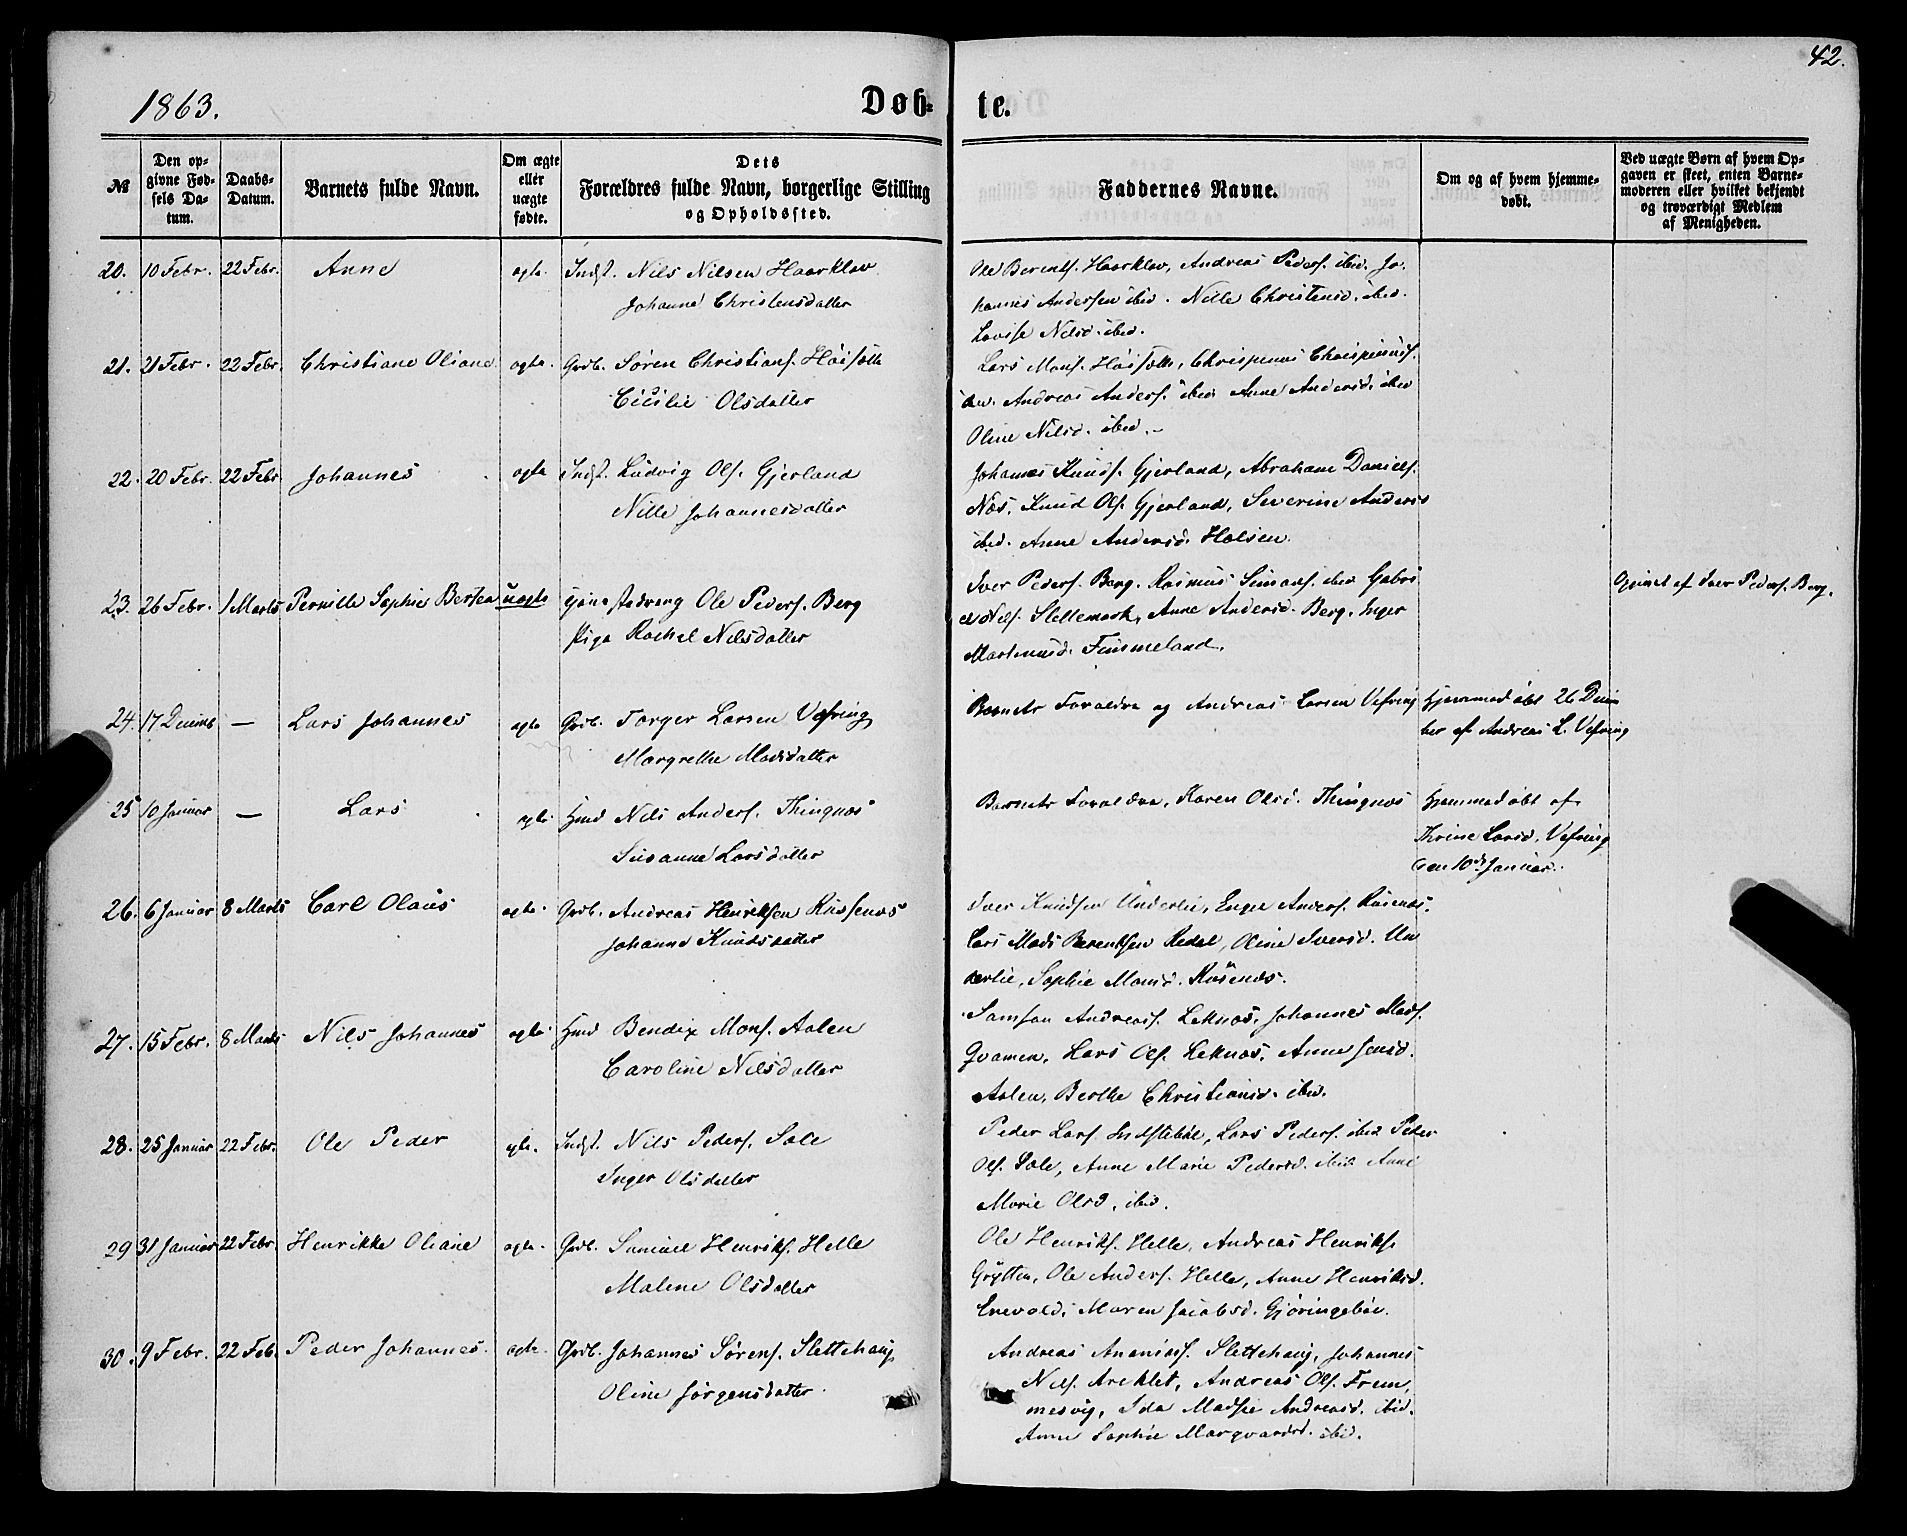 42.
1863.
Døb- te.
№ Den opgivne Fødsels Datum. Daabs-Datum. Barnets fulde Navn. Om ægte eller uægte fødte. Dets Forældres fulde Navn, borgerlige Stilling og Opholdssted. Faddernes Navne. Om og af hvem hjemmedøbt. Ved uægte Børn af hvem Opgaven er skeet, enten Barnemoderen eller hvilket bekjendt og troværdigt Medlem af Menigheden.
20. 10 Febr. 22 Febr. Anne ægte Indst. Nils Nilsen Haarklov
Johanne Christensdatter
Ole Berents. Haarklov, Andreas Peders. ibid. Jo-
hannes Andersen ibid. Nille Christensd. ibid.
Lovise Nilsd. ibid.
21. 21 Febr. 22 Febr. Christiane Oliane ægte. Grdb. Søren Christians. Høisæth
Cicilie Olsdatter
Lars Mons. Høisæth, Chrispinus Chrispinuss.
ibid. Andreas Anders. ibid Anne Andersd. ibid
Oline Nilsd. ibid.
22. 20 Febr. 22 Febr Johannes ægte Indst. Ludvig Ols. Gjerland
Nille Johannesdatter
Johannes Knuds. Gjerland, Abraham Daniels.
Næs, Knud Ols. Gjerland, Severine Andersd
ibid. Anne Andersd. Holsen.
23. 26 Febr. 1 Marts Pernille Sophie Bertea uægte Tjenestedreng Ole Peders. Berg
Pige Rachel Nilsdatter
Iver Peders. Berg, Rasmus Simons. ibid Gabri
el Nils. Slettemark, Anne Andersd. Berg, Inger
Martinusd. Timmeland.
Opgivet af Iver Peders. Berg.
24. 17 Decemb — Lars Johannes ægte Grdb. Torger Larsen Vefring
Margrethe Madsdatter
Barnets Forældre og Andreas Larsen Vefring
Hjemmedøbt 26 Decem
ber af Andreas L. Vefring
25 10 Januar — Lars ægte Hmd Nils Anders. Thingnæs
Susanne Larsdatter
Barnets Forældre, Karen Olsd. Thingnæs
Hjemmedøbt af
Thrine Larsd. Vefring
den 10de Januar.
26. 6 Januar 8 Marts Carl Olaus ægte. Grdb. Andreas Henriksen Russenæs
Johanne Knudsdatter
Iver Knudsen Underlie, Enge Anders. Rusenæs,
Lars Mads Berentsen Redal, Oline Iversd. Un
derlie, Sophie Monsd. Rusenæs.
27. 15 Febr. 8 Marts Nils Johannes ægte Hmd Bendix Mons. Aalen
Caroline Nilsdatter
Samson Andreass. Leknæs, Johannes Mads.
Qvamen, Lars Ols. Leknæs, Anne Jensd.
Aalen, Berthe Christiansd. ibid.
28. 25 Januar 22 Febr. Ole Peder ægte. Indst. Nils Peders. Sole
Inger Olsdatter
Peder Lars. Indstebøe, Lars Peders. ibid Peder
Ols. Sole, Anne Marie Pedersd. ibid Anne
Marie Olsd. ibid.
29 31 Januar 22 Febr. Henrikke Oliane ægte. Grdb. Samuel Henriks. Helle
Malene Olsdatter
Ole Henriks. Helle, Andreas Henriks.
Grytten, Ole Anders. Helle, Anne Henriksd.
Enevold, Maren Jacobsd. Gjøringebøe.
30. 9 Febr. 22 Feb. Peder Johannes. ægte. Grdb. Johannes Sørens. Slettehaug
Oline Jørgensdatter.
Andreas Ananiass. Slettehaug, Johannes
Nils. Areklet, Andreas Ols. Frem,
mesvig, Ida Madsie Andreasd. ibid.
Anne Sophie Marqvardsd. ibid.